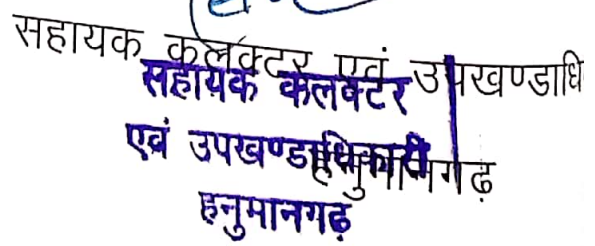 सहायक कलक्टर एवं उपखण्डाधि
सहायक कलक्टर
एवं उपखण्डाधिकारी
हनुमानगढ़
हनुमानगढ़